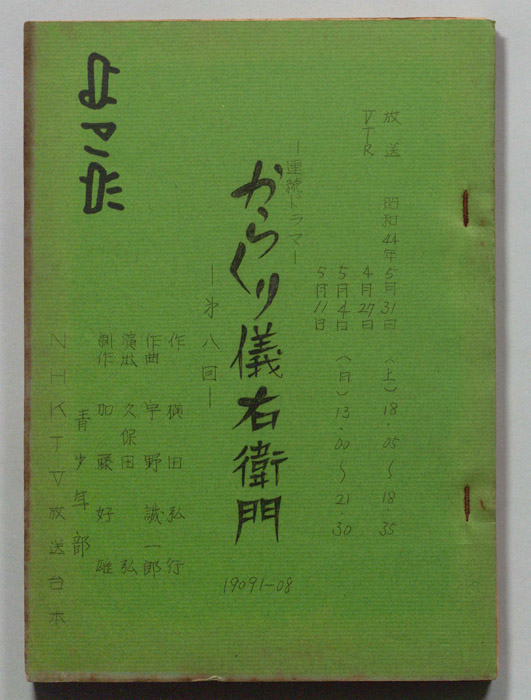 放送 昭和44年5月31日(土)18.05〜18.35
VTR 4月27日
5月4日(日)13.00〜21.30
5月11日
―連続ドラマ―
からくり儀右衛門
―第八回―
19091-08
作 横田弘行
作曲 宇野誠一郎
演出 久保田弘
制作 加藤好雄
青少年部
NHKTV放送台本